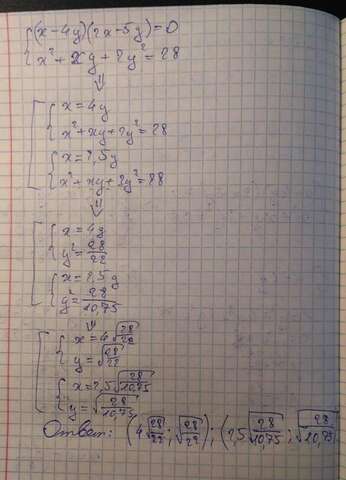 {(x-4y)(2x-5y)=0
{x²+xy+2y²=28
⇓
[{x=4y
{x²+xy+2y²=28
{x=2,5y
{x²+xy+2y²=28
⇓
[{x=4y
{y²=28/22
{x=2,5y
{y²=28/10,75
⇓
[{x=4√(28/22)
{y=√(28/22)
{x=2,5√(28/10,75)
{y=√(28/10,75)
Ответ: (4√(28/22); √(28/22)); (2,5√(28/10,75); √(28/10,75))